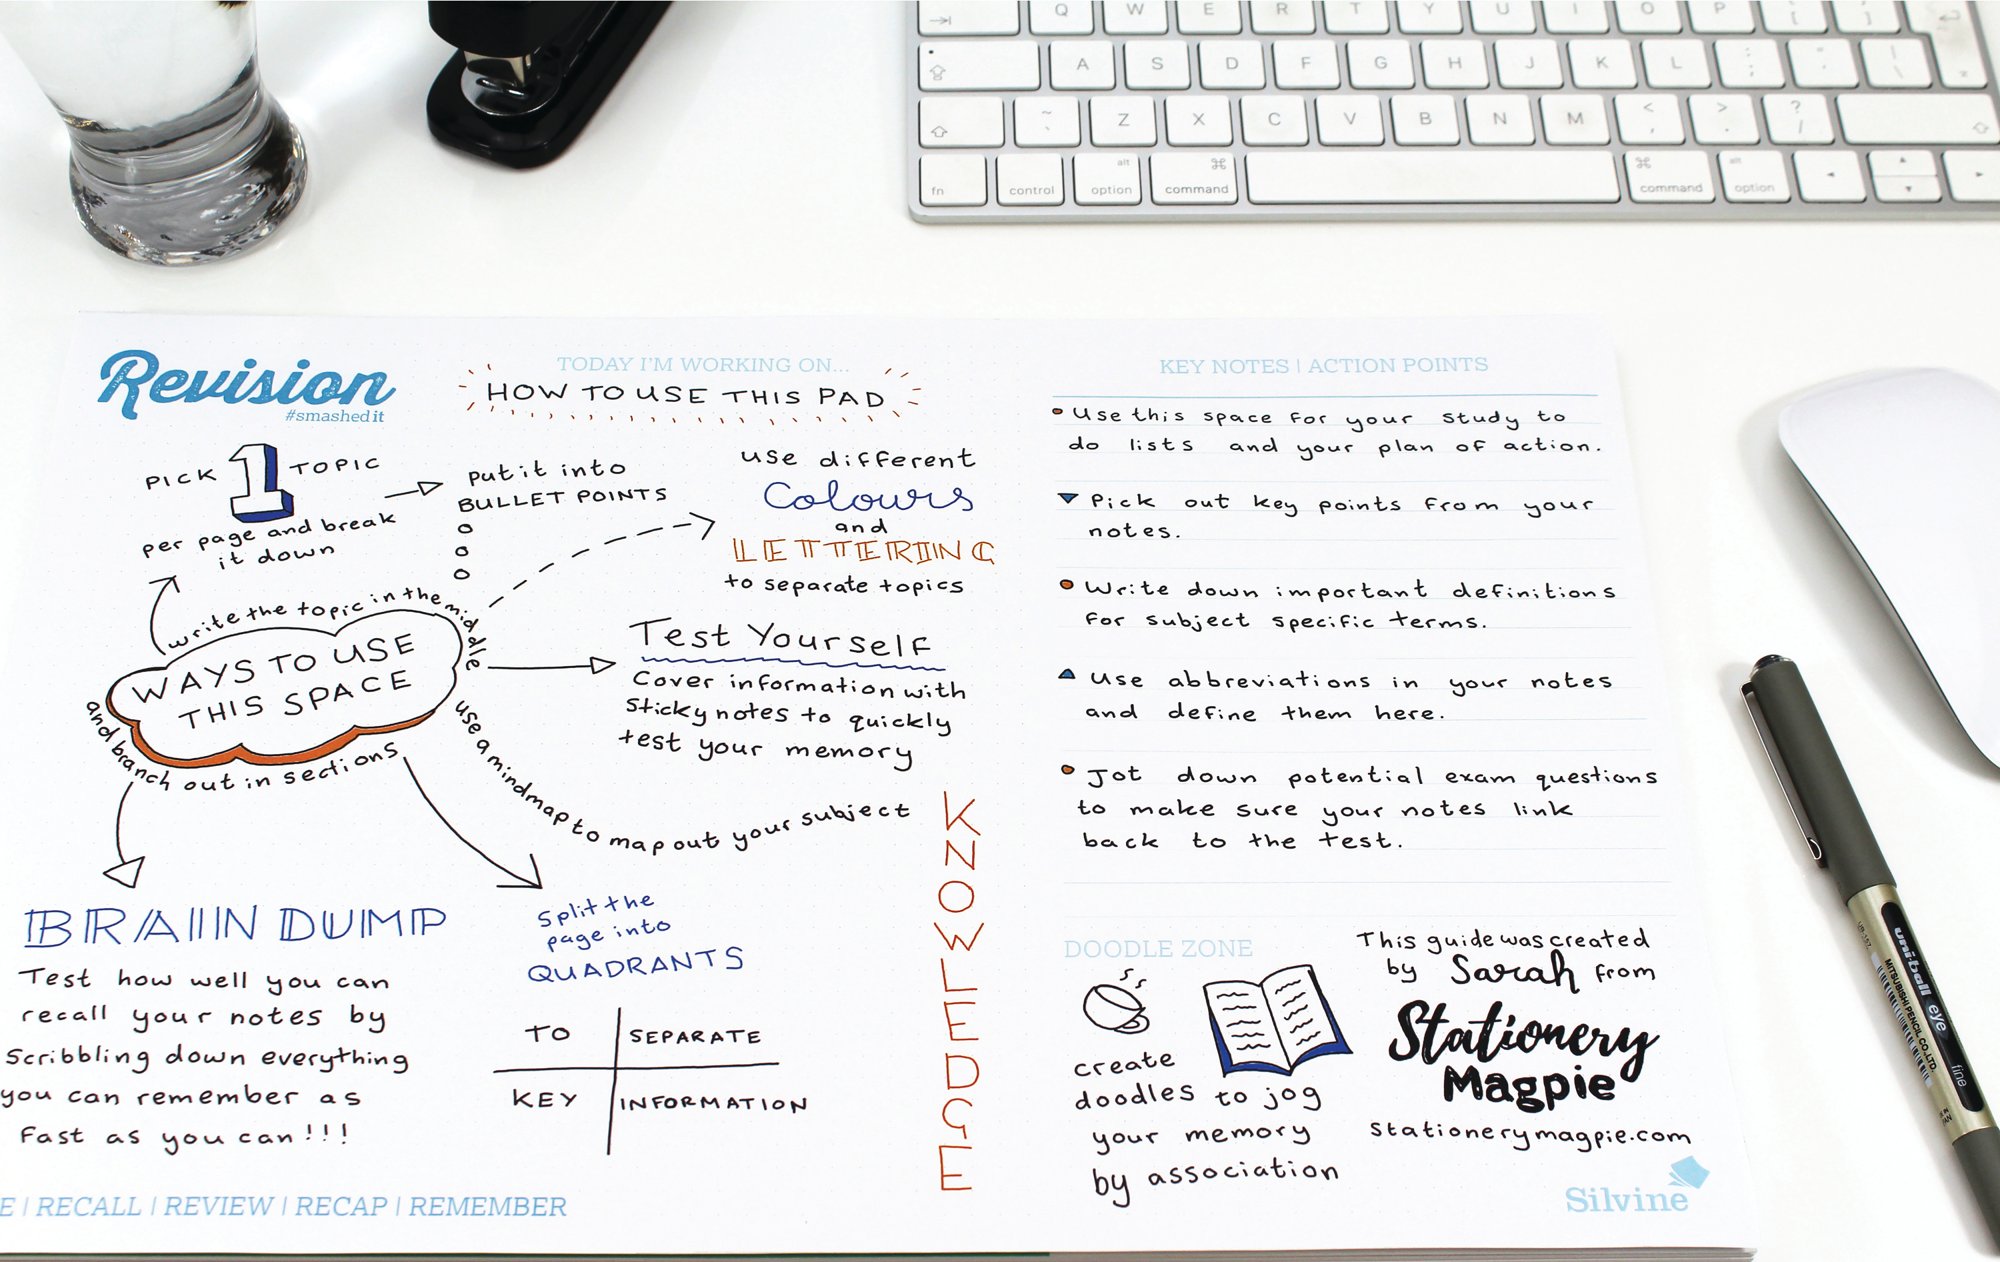 Q W E R T Y U I O P { [ } ]
A S D F G H J K L : ; " ' | \
~ ` Z X C V B N M < , > . ? /
fn control alt option ⌘ command ⌘ command alt option
Revision
#smashedit
TODAY I'M WORKING ON...
HOW TO USE THIS PAD
PICK 1 TOPIC
per page and break
it down
put it into
BULLET POINTS
use different
Colours
and
LETTERING
to separate topics
write the topic in the middle
WAYS TO USE
THIS SPACE
and branch out in sections
Test Yourself
Cover information with
sticky notes to quickly
test your memory
use a mindmap to map out your subject
BRAIN DUMP
Test how well you can
recall your notes by
scribbling down everything
you can remember as
fast as you can!!!
Split the
page into
QUADRANTS
TO SEPARATE
KEY INFORMATION
KNOWLEDGE
E | RECALL | REVIEW | RECAP | REMEMBER
KEY NOTES | ACTION POINTS
Use this space for your study to
do lists and your plan of action.
Pick out key points from your
notes.
Write down important definitions
for subject specific terms.
Use abbreviations in your notes
and define them here.
Jot down potential exam questions
to make sure your notes link
back to the test.
DOODLE ZONE
create
doodles to jog
your memory
by association
This guide was created
by Sarah from
Stationery
Magpie
stationerymagpie.com
Silvine
UB-157
uni-ball eye fine
MITSUBISHI PENCIL CO.,LTD.